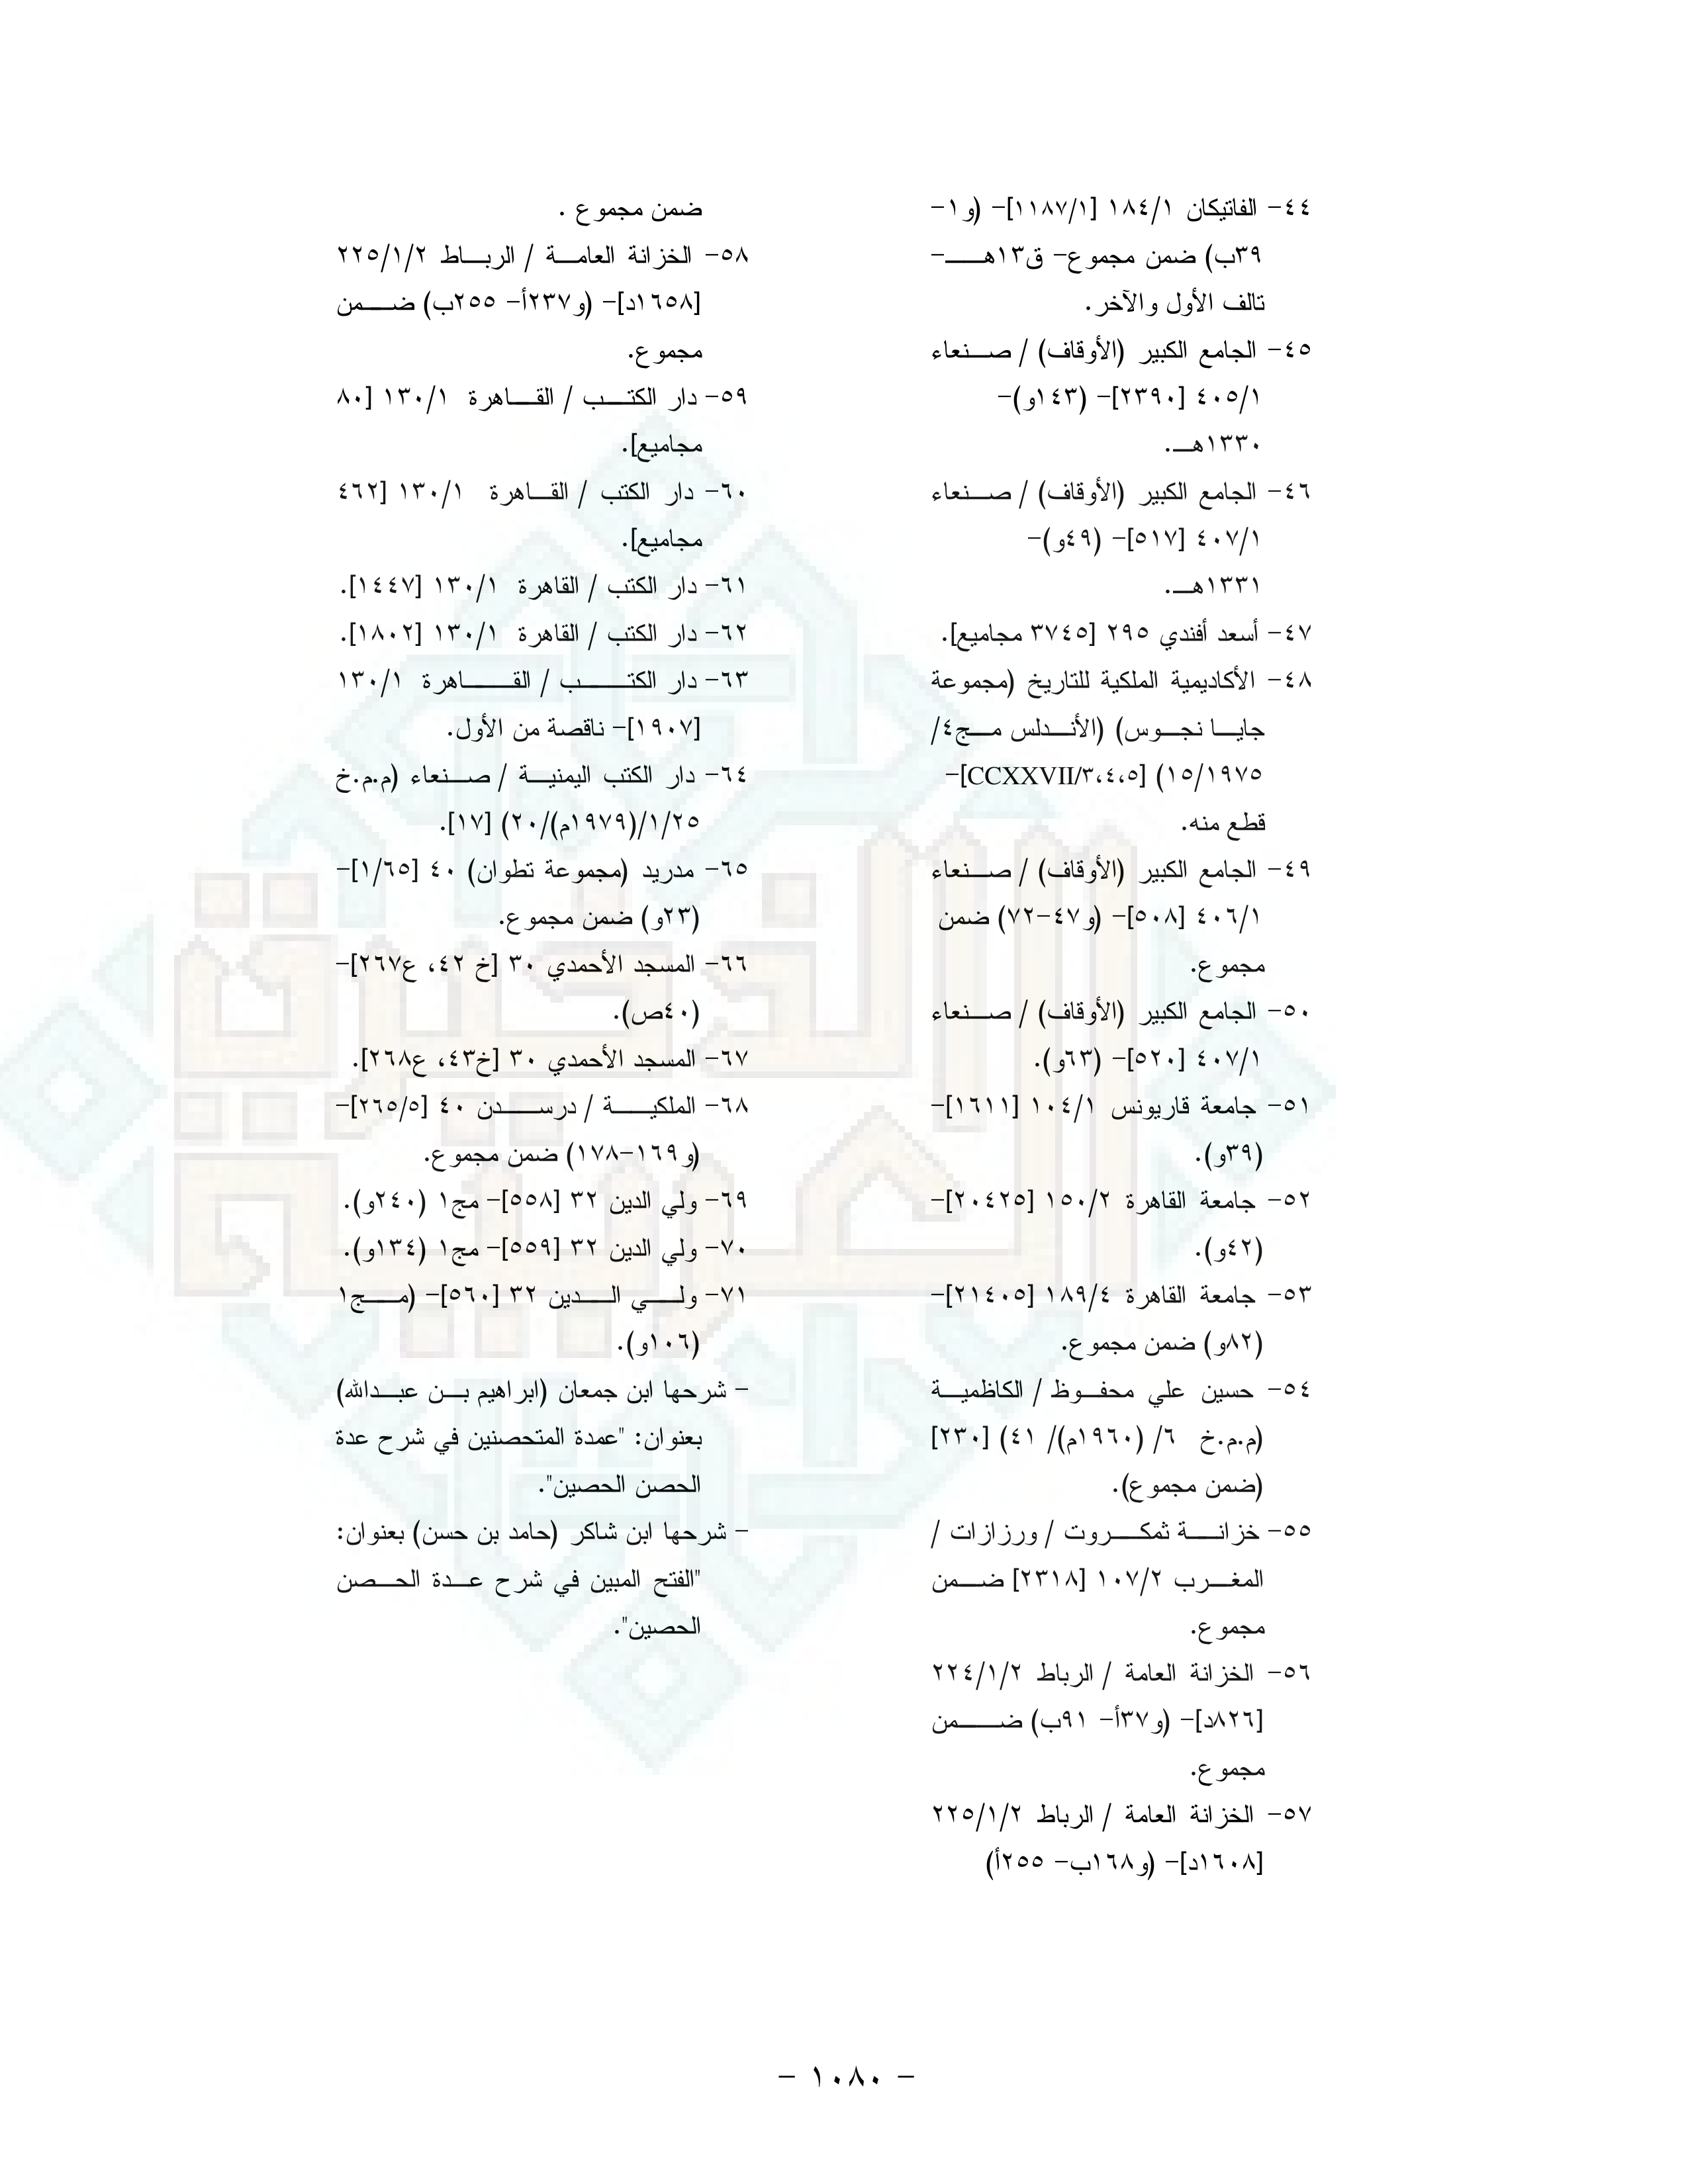 ٤٤- الفاتيكان ١٨٤/١ [١١٨٧/١]- (و١-
٣٩ب) ضمن مجموع- ق١٣هـ-
تالف الأول والآخر.
٤٥- الجامع الكبير (الأوقاف) / صنعاء
٤٠٥/١ [٢٣٩٠]- (١٤٣و)-
١٣٣٠هـ.
٤٦- الجامع الكبير (الأوقاف) / صنعاء
٤٠٧/١ [٥١٧]- (٤٩و)-
١٣٣١هـ.
٤٧- أسعد أفندي ٢٩٥ [٣٧٤٥ مجاميع].
٤٨- الأكاديمية الملكية للتاريخ (مجموعة
جايا نجوس) (الأندلس مج٤/
١٥/١٩٧٥) [CCXXVII/٣،٤،٥]-
قطع منه.
٤٩- الجامع الكبير (الأوقاف) / صنعاء
٤٠٦/١ [٥٠٨]- (و٤٧-٧٢) ضمن
مجموع.
٥٠- الجامع الكبير (الأوقاف) / صنعاء
٤٠٧/١ [٥٢٠]- (٦٣و).
٥١- جامعة قاريونس ١٠٤/١ [١٦١١]-
(٣٩و).
٥٢- جامعة القاهرة ١٥٠/٢ [٢٠٤٢٥]-
(٤٢و).
٥٣- جامعة القاهرة ١٨٩/٤ [٢١٤٠٥]-
(٨٢و) ضمن مجموع.
٥٤- حسين علي محفوظ / الكاظمية
(م.م.خ ٦/ (١٩٦٠م)/ ٤١) [٢٣٠]
(ضمن مجموع).
٥٥- خزانة ثمكروت / ورزازات /
المغرب ١٠٧/٢ [٢٣١٨] ضمن
مجموع.
٥٦- الخزانة العامة / الرباط ٢٢٤/١/٢
[٨٢٦د]- (و٣٧أ- ٩١ب) ضمن
مجموع.
٥٧- الخزانة العامة / الرباط ٢٢٥/١/٢
[١٦٠٨د]- (و١٦٨ب- ٢٥٥أ)
ضمن مجموع .
٥٨- الخزانة العامة / الرباط ٢٢٥/١/٢
[١٦٥٨د]- (و٢٣٧أ- ٢٥٥ب) ضمن
مجموع.
٥٩- دار الكتب / القاهرة ١٣٠/١ [٨٠
مجاميع].
٦٠- دار الكتب / القاهرة ١٣٠/١ [٤٦٢
مجاميع].
٦١- دار الكتب / القاهرة ١٣٠/١ [١٤٤٧].
٦٢- دار الكتب / القاهرة ١٣٠/١ [١٨٠٢].
٦٣- دار الكتب / القاهرة ١٣٠/١
[١٩٠٧]- ناقصة من الأول.
٦٤- دار الكتب اليمنية / صنعاء (م.م.خ
١/٢٥/(١٩٧٩م)/٢٠) [١٧].
٦٥- مدريد (مجموعة تطوان) ٤٠ [١/٦٥]-
(٢٣و) ضمن مجموع.
٦٦- المسجد الأحمدي ٣٠ [خ ٤٢، ع٢٦٧]-
(٤٠ص).
٦٧- المسجد الأحمدي ٣٠ [خ٤٣، ع٢٦٨].
٦٨- الملكية / درسدن ٤٠ [٢٦٥/٥]-
(و١٦٩-١٧٨) ضمن مجموع.
٦٩- ولي الدين ٣٢ [٥٥٨]- مج١ (٢٤٠و).
٧٠- ولي الدين ٣٢ [٥٥٩]- مج١ (١٣٤و).
٧١- ولي الدين ٣٢ [٥٦٠]- (مج١
(١٠٦و).
- شرحها ابن جمعان (ابراهيم بن عبدالله)
بعنوان: "عمدة المتحصنين في شرح عدة
الحصن الحصين".
- شرحها ابن شاكر (حامد بن حسن) بعنوان:
"الفتح المبين في شرح عدة الحصن
الحصين".
- ١٠٨٠ -